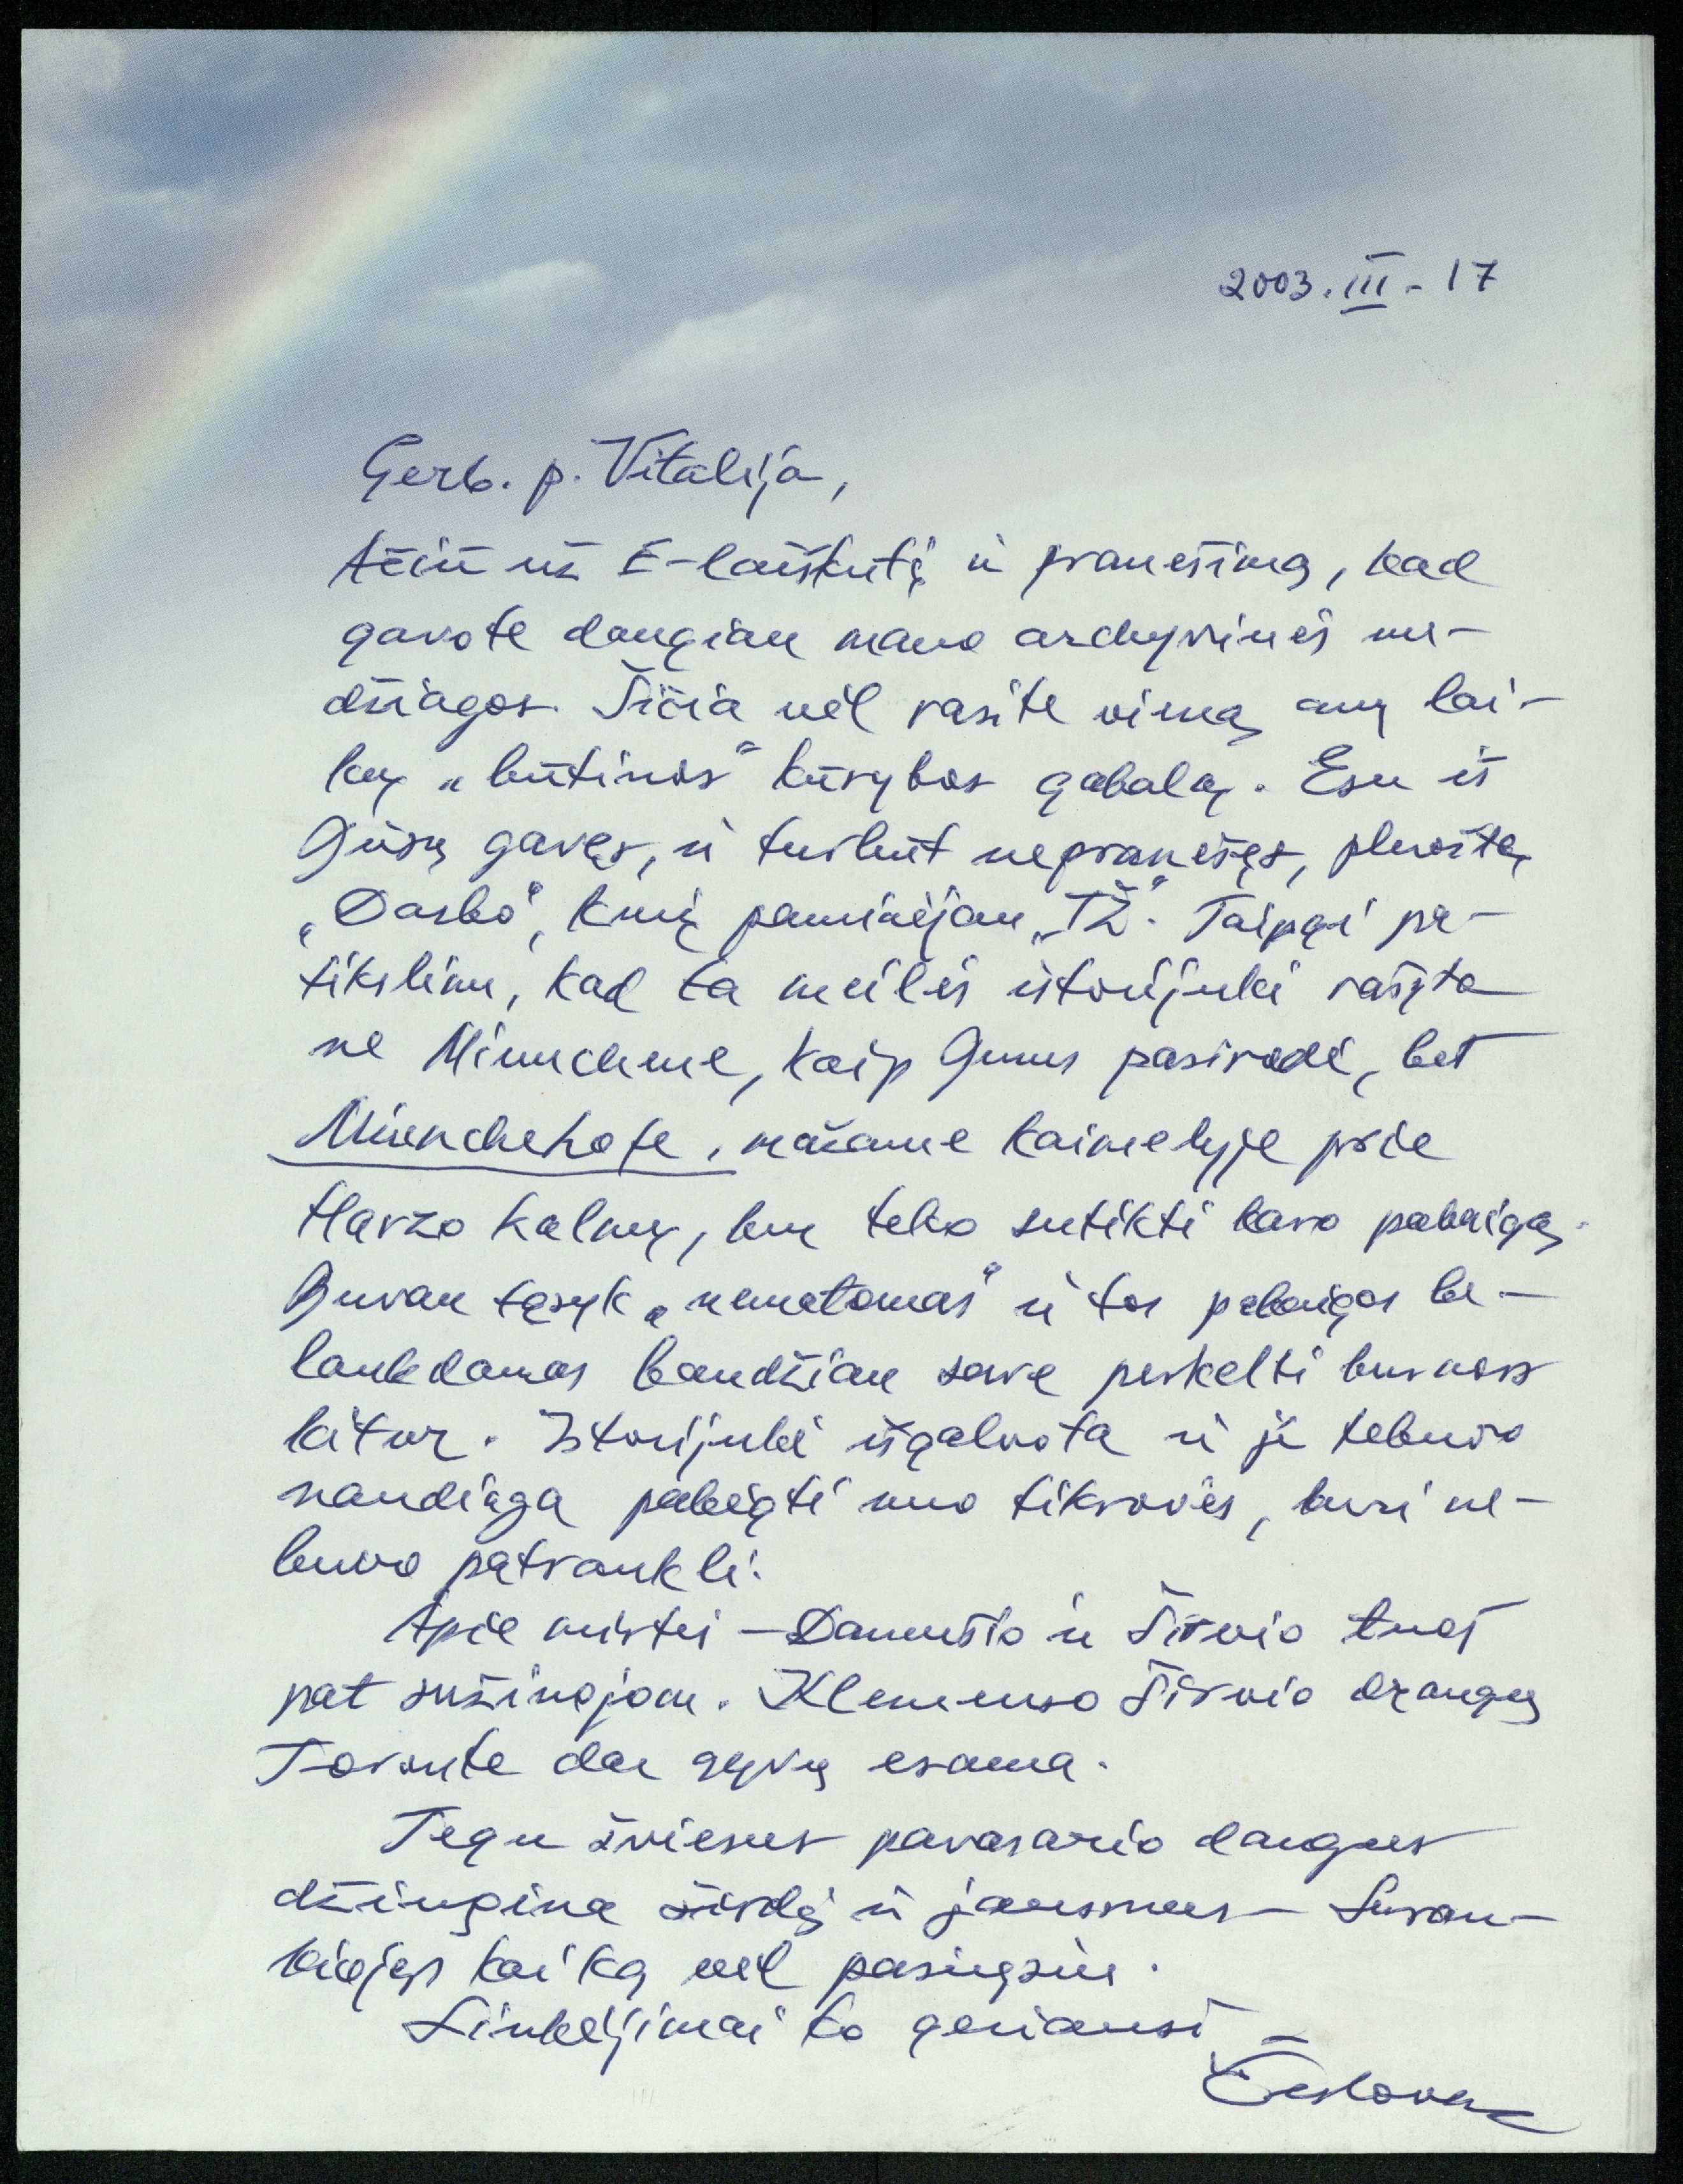 2003. III - 17
Gerb. p. Vitalija,
Ačiū už E-laiškutį ir pranešimą, kad
gavote daugiau mano archyvinės me-
džiagos. Šičia vėl rasite vieną anų lai-
kų „būtinos" kūrybos gabalą. Esu iš
Jūsų gavęs, ir turbūt nepranešęs, pluoštą
„Darbo", kurį paminėjau „TŽ". Taipgi pa-
tikslinu, kad ta meilės istorijukė rašyta
ne Miunchene, kaip Jums pasirodė, bet
Miunchehofe, mažame kaimelyje prie
Harzo kalnų, kur teko sutikti karo pabaigą.
Buvau tąsyk „nematomas" ir tos pabaigos be-
laukdamas bandžiau save perkelti kur nors
kitur. Istorijukė išgalvota ir ji tebuvo
naudinga pabėgti nuo tikrovės, kuri ne-
buvo patraukli.
Apie mirtis — Daunušio ir Širvio tuoj
pat sužinojom. Klemenso Širvio draugų
Toronte dar gyvų esama.
Tegu šviesus pavasario dangus
džiugina širdį ir jausmus — Suran-
kiojęs kai ką vėl pasiųsiu.
Linkėjimai ko geriausi —
Česlovas